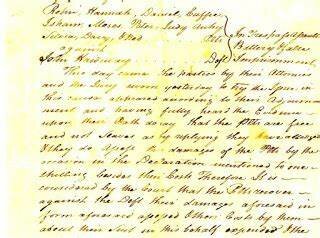 Robin, Hannah, Daniel, Cuffee
Isham, Moses, Peter, Judy
Silvia, Davy, & Ned Plts In Trespass Assault
against Battery & false
John Hardaway Deft Imprisonment
This day came the parties by their Attornies
and the Jury sworn yesterday to try the Issue, in
this cause appeared according to their Adjournment
and having fully heard the Evidence
upon their Oath do say that the Plts are free
and not Slaves as by replying they have alledged
& they do assess the damages of the Plts by the
reason in the Declaration mentioned to one
shilling besides their Costs Therefore It is
considered by the Court that the Plts recover
against the Deft their damages aforesaid in
form aforesaid assessed & their Costs by them
about their Suit in this behalf expended & the